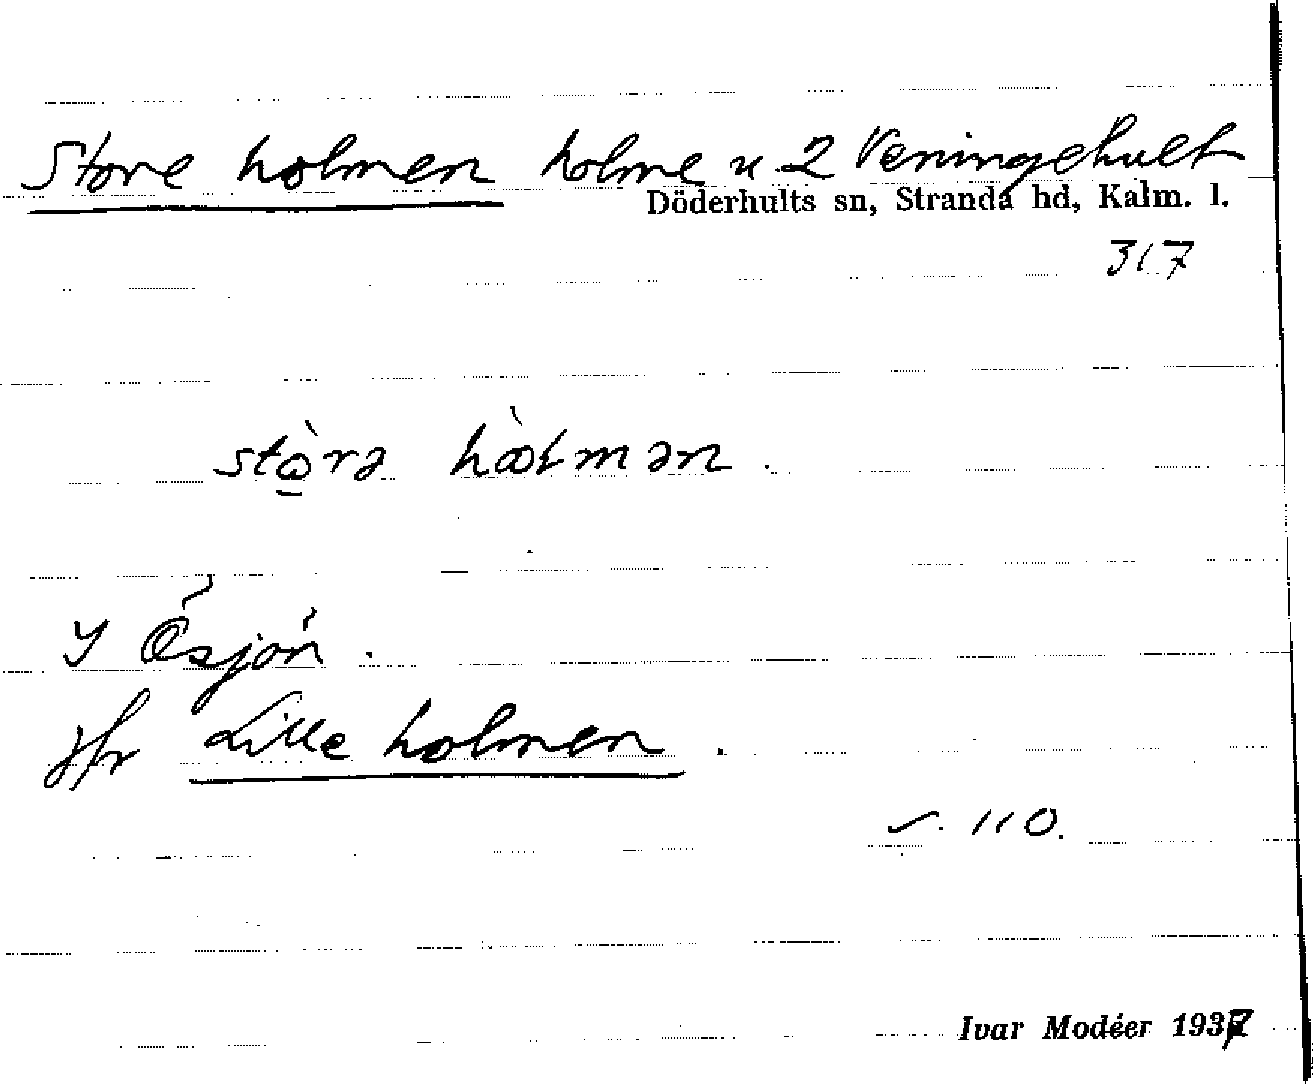 Store holmen holme u 2 Veningehult
Döderhults sn, Stranda hd, Kalm. l.
317
stò̱rə hòłmən.
I Ösjön.
Jfr Lille holmen.
s. 110.
Ivar Modéer 1937